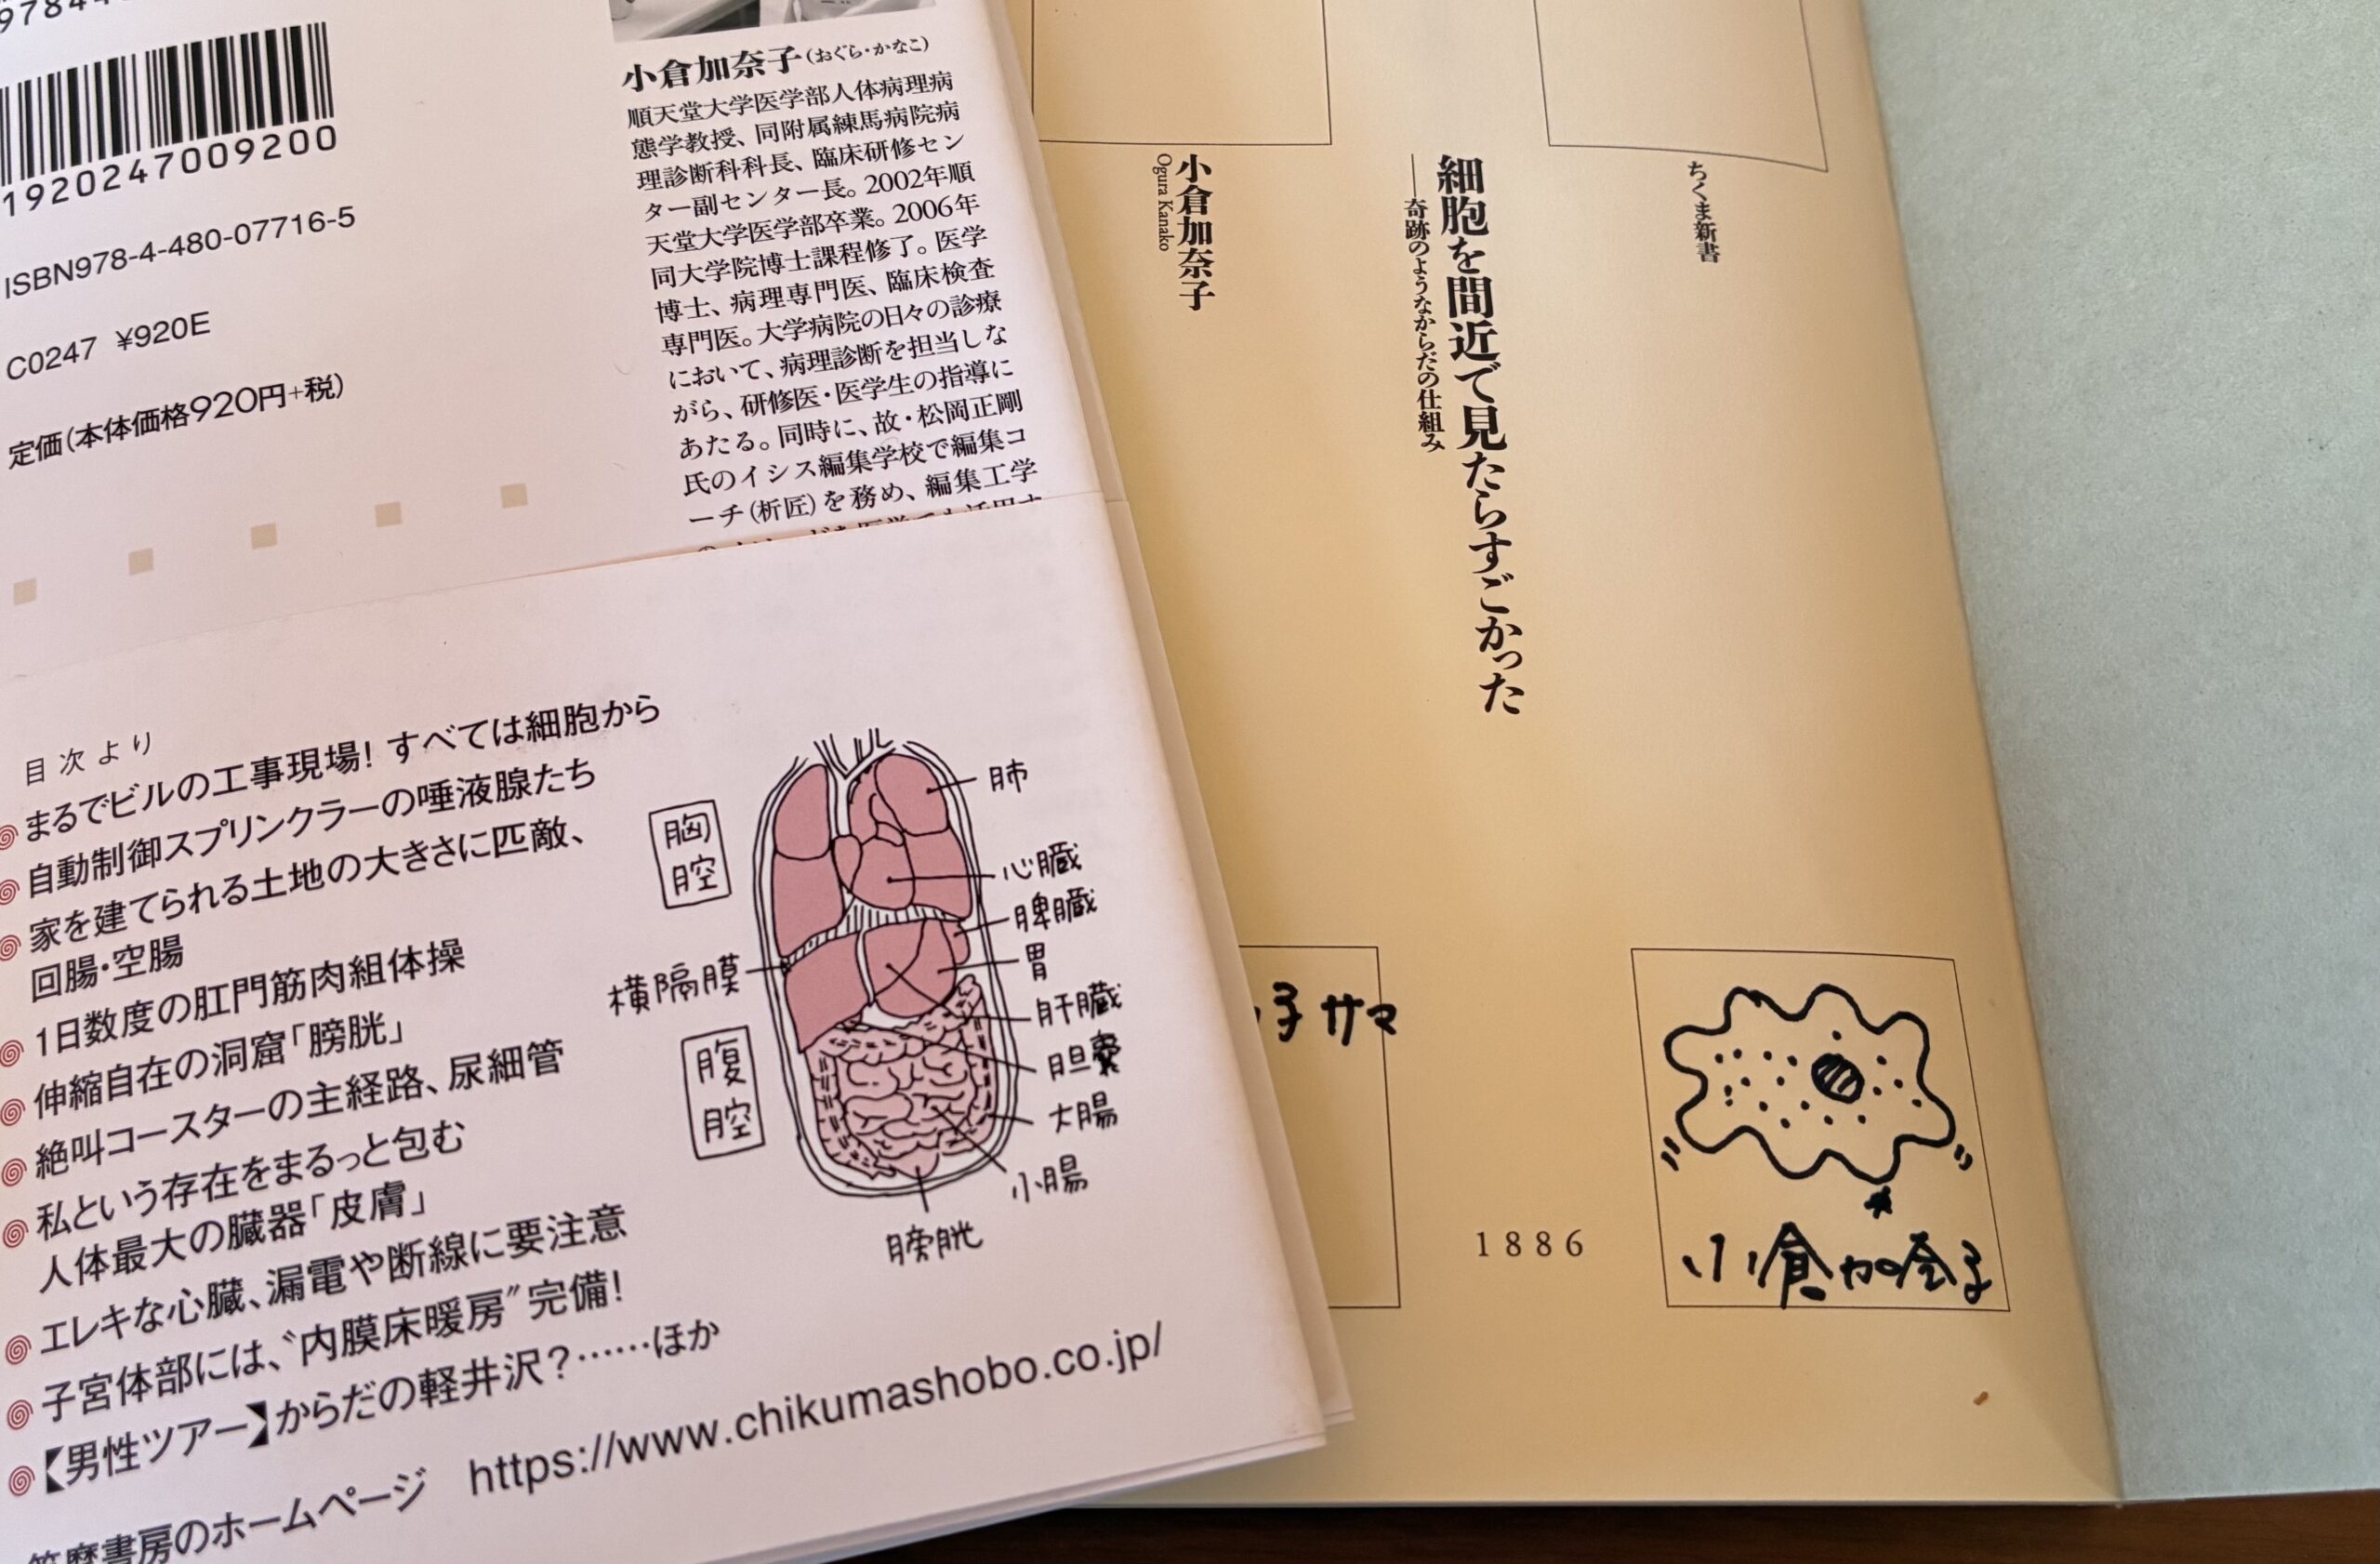 1920247009200
ISBN978-4-480-07716-5
C0247 ¥920E
定価(本体価格920円+税)
小倉加奈子(おぐら・かなこ)
順天堂大学医学部人体病理病
態学教授、同附属練馬病院病
理診断科科長、臨床研修セン
ター副センター長。2002年順
天堂大学医学部卒業。2006年
同大学院博士課程修了。医学
博士、病理専門医、臨床検査
専門医。大学病院の日々の診療
において、病理診断を担当しな
がら、研修医・医学生の指導に
あたる。同時に、故・松岡正剛
氏のイシス編集学校で編集コ
ーチ(析匠)を務め、編集工学
目次より
まるでビルの工事現場! すべては細胞から
自動制御スプリンクラーの唾液腺たち
家を建てられる土地の大きさに匹敵、
回腸・空腸
1日数度の肛門筋肉組体操
伸縮自在の洞窟「膀胱」
絶叫コースターの主経路、尿細管
私という存在をまるっと包む
人体最大の臓器「皮膚」
エレキな心臓、漏電や断線に要注意
子宮体部には、〝内膜床暖房〟完備!
【男性ツアー】からだの軽井沢?……ほか
筑摩書房のホームページ https://www.chikumashobo.co.jp/
胸腔
横隔膜
腹腔
肺
心臓
脾臓
胃
肝臓
胆嚢
大腸
小腸
膀胱
ちくま新書
細胞を間近で見たらすごかった
──奇跡のようなからだの仕組み
小倉加奈子
Ogura Kanako
子サマ
1886
小倉加奈子